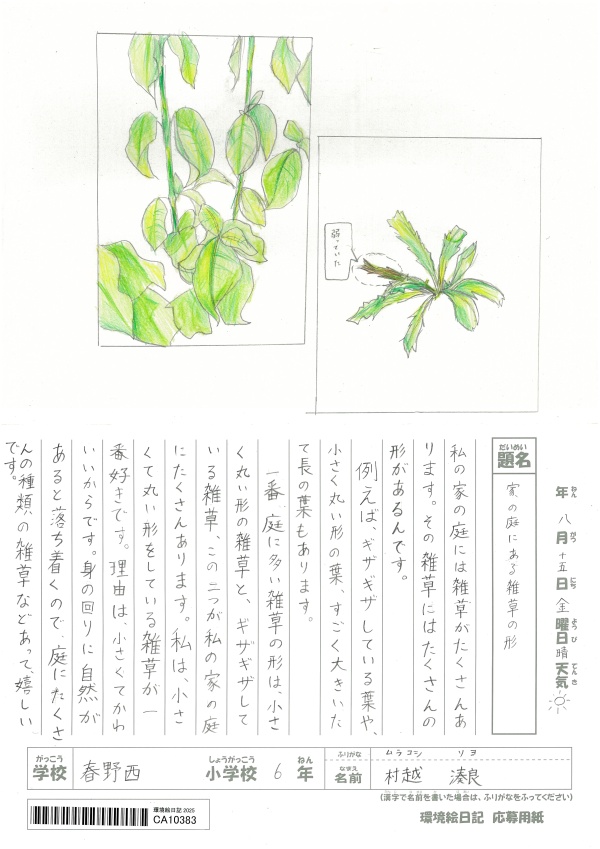 弱っていた
年 八月十五日 金曜日 晴 天気
ねん がつ にち ようび てんき
だいめい
題名
家の庭にある雑草の形
私の家の庭には雑草がたくさんあ
ります。その雑草にはたくさんの
形があるんです。
例えば、ギザギザしている葉や、
小さく丸い形の葉、すごく大きいた
て長の葉もあります。
一番、庭に多い雑草の形は、小さ
く丸い形の雑草と、ギザギザして
いる雑草、この二つが私の家の庭
にたくさんあります。私は、小さ
くて丸い形をしている雑草が一
番好きです。理由は、小さくてかわ
いいからです。身の回りに自然が
あると落ち着くので、庭にたくさ
んの種類の雑草などあって、嬉しい
です。
がっこう しょうがっこう ねん
学校 春野西 小学校 6 年
ふりがな ムラコシ ソヨ
なまえ
名前 村越 湊良
(漢字で名前を書いた場合は、ふりがなをふってください)
環境絵日記 応募用紙
環境絵日記 2025
CA10383